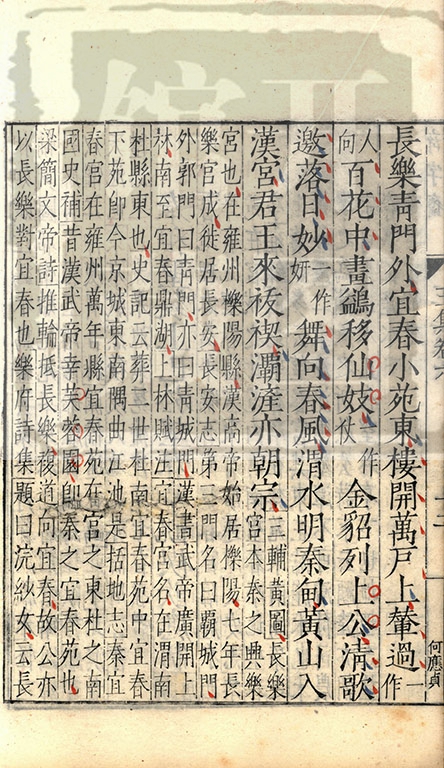 長樂青門外宜春小苑東樓開萬戶上輦過一作
人向百花中畫鷁移仙妓一作仗金貂列上公清歌
邀落日妙一作妍舞向春風渭水明秦甸黃山入
漢宮君王來祓禊灞滻亦朝宗三輔黃圖長樂宮本秦之興樂
宮也在雍州櫟陽縣漢高帝始居櫟陽七年長
樂宮成徙居長安長安志第三門名曰霸城門
外郭門曰青門亦曰青城門漢書武帝廣開上
林南至宜春鼎湖上林賦注宜春宮名在渭南
杜縣東也史記云葬二世杜南宜春苑中宜春
下苑即今京城東南隅曲江池是括地志秦宜
春宮在雍州萬年縣宜春苑在宮之東杜之南
國史補昔漢武帝幸芙蓉園即秦之宜春苑也
梁簡文帝詩推輪抵長樂複道向宜春故公亦
以長樂對宜春也樂府詩集題曰浣紗女云長
何應貞